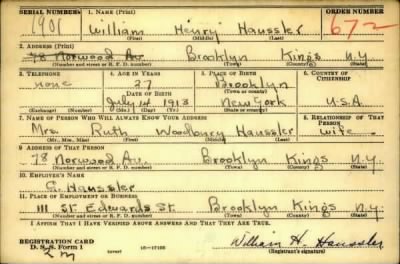 SERIAL NUMBERS 1. NAME (Print) ORDER NUMBER
1901 William Henry Haussler 672
(First) (Middle) (Last)
2. ADDRESS (Print)
78 Norwood Av. Brooklyn Kings N.Y.
(Number and street or R. F. D. number) (Town) (County) (State)
3. TELEPHONE 4. AGE IN YEARS 5. PLACE OF BIRTH 6. COUNTRY OF CITIZENSHIP
none 27 Brooklyn
DATE OF BIRTH (Town or county)
July 14 1913 New York U.S.A.
(Exchange) (Number) (Mo.) (Day) (Yr.) (State or country)
7. NAME OF PERSON WHO WILL ALWAYS KNOW YOUR ADDRESS 8. RELATIONSHIP OF THAT PERSON
Mrs. Ruth Woodbury Haussler wife
(Mr., Mrs., Miss) (First) (Middle) (Last)
9. ADDRESS OF THAT PERSON
78 Norwood Av. Brooklyn Kings N.Y.
(Number and street or R. F. D. number) (Town) (County) (State)
10. EMPLOYER'S NAME
Haussler
11. PLACE OF EMPLOYMENT OR BUSINESS
111 St. Edwards St. Brooklyn Kings N.Y.
(Number and street or R. F. D. number) (Town) (County) (State)
I AFFIRM THAT I HAVE VERIFIED ABOVE ANSWERS AND THAT THEY ARE TRUE.
REGISTRATION CARD
D. S. S. Form 1 (over) William H. Haussler
(Registrant's signature)